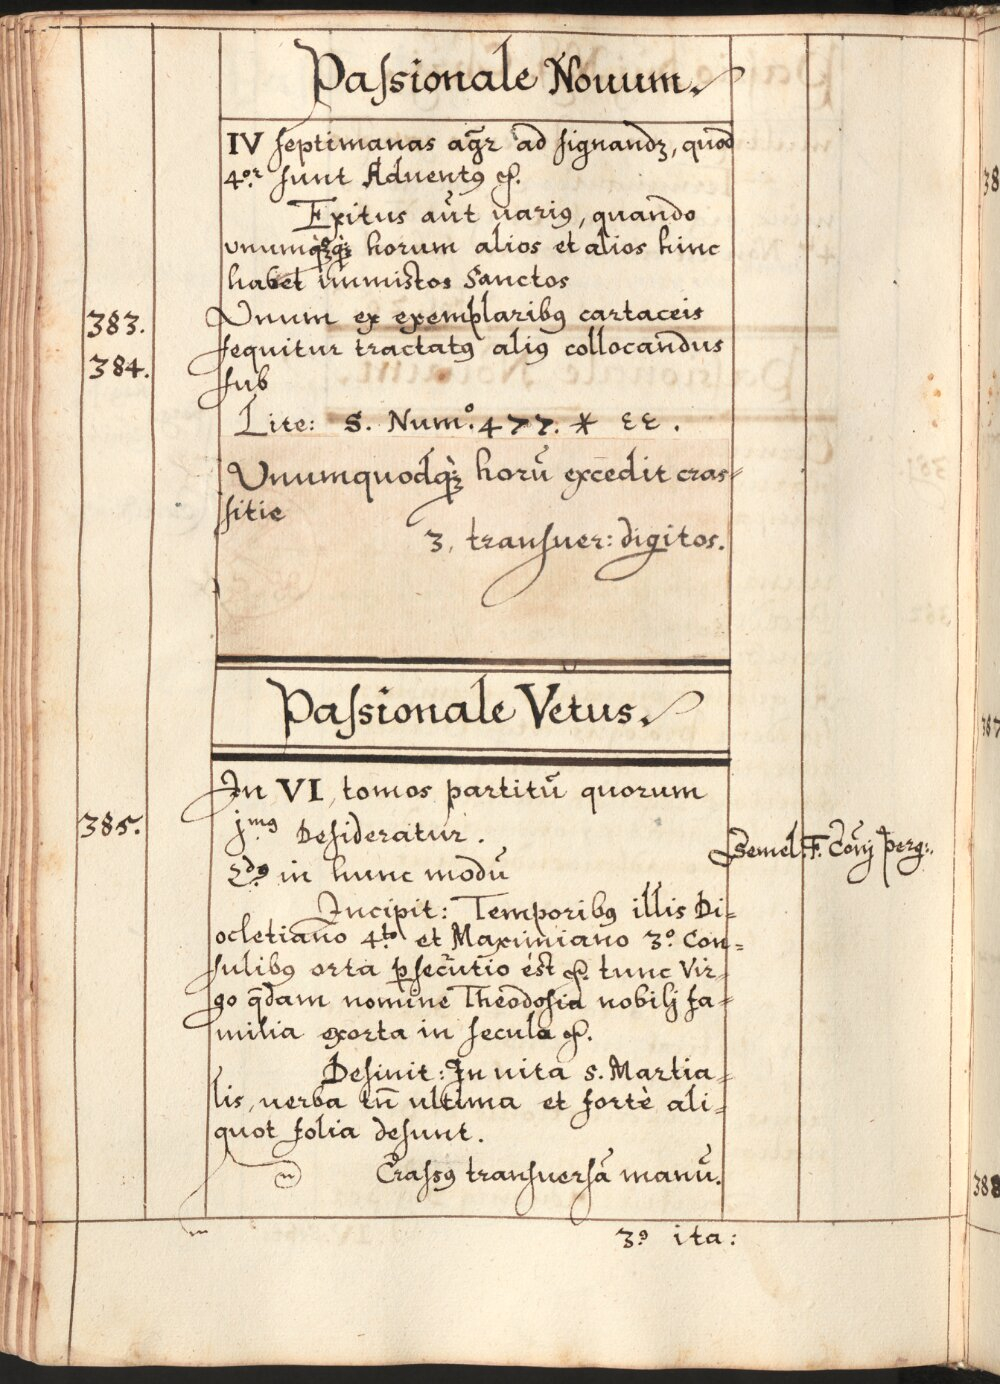 Paſsionale Nouum.
IV ſeptimanas ag̃r ad ſignandꝫ, quod
4.or ſunt Aduentꝰ &.
Exitus aũt uariꝰ, quando
unumq̀ꝫq̀ꝫ horum alios et alios hinc
habet immistos Sanctos
383. Vnum ex exemplaribꝰ cartaceis
384. ſequitur tractatꝰ aliꝰ collocandus
ſub
Lite: S. Num.o 477. * εε.
Unumquodq̀ꝫ horũ excedit craſ=
ſitie
3, tranſuer: digitos.
Paſsionale Vetus.
In VI, tomos partitũ quorum
385. j.mꝰ Deſideratur.
Semel. F. Conj perg:.
2.dꝰ in hunc modũ
Incipit: Temporibꝰ illis Di=
ocletiano 4.to et Maximiano 3.o Con=
ſulibꝰ orta ꝑſecutio est & tunc Vir=
go q̃dam nomine Theodoſia nobilj fa=
milia exorta in ſecula &.
Deſinit: In uita S. Martia=
lis, uerba tñ ultima et fortè ali=
quot folia deſunt.
Craſſꝰ tranſuerſã manũ.
3.ꝰ ita:
38
387
388